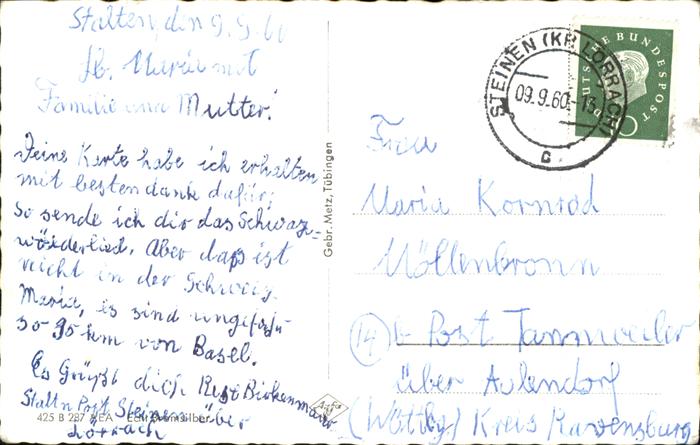 Stalten, den 9.9.60
lb. Maria mit
Familie und Mutter!
Deine Karte habe ich erhalten,
mit besten dank dafür;
so sende ich dir das Schwarz-
wälderlied. Aber daß ist
nicht in der Schweiz.
Maria, es sind ungefähr
so 35 km von Basel.
Es Grüßt dich Birkenmaier
Stalten Post Steinen über
Lörrach
425 B 287 AEA Echt Bromsilber
Agfa
Gebr. Metz, Tübingen
STEINEN (KR. LÖRRACH)
09.9.60.-13
c
DEUTSCHE BUNDESPOST
Frau
Maria Kornrod
Möllenbronn
(14) b Post Tannweiler
über Aulendorf
(Württbg) Kreis Ravensburg